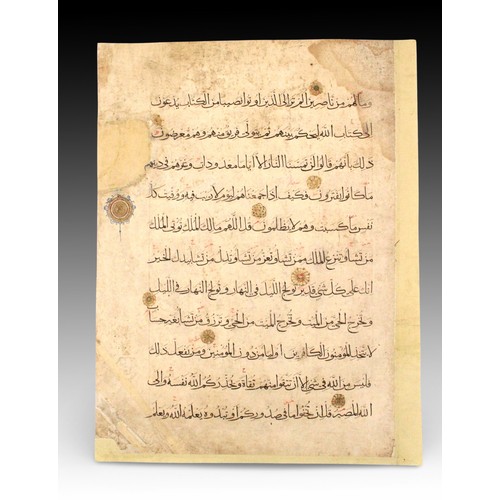 وما لهم من ناصرين الم تر الى الذين اوتوا نصيبا من الكتاب يدعون
الى كتاب الله ليحكم بينهم ثم يتولى فريق منهم وهم معرضون
ذلك بانهم قالوا لن تمسنا النار الا اياما معدودات وغرهم في دينهم
ما كانوا يفترون فكيف اذا جمعناهم ليوم لا ريب فيه ووفيت كل
نفس ما كسبت وهم لا يظلمون قل اللهم مالك الملك توتي الملك
من تشاء وتنزع الملك ممن تشاء وتعز من تشاء وتذل من تشاء بيدك الخير
انك على كل شي قدير تولج الليل في النهار وتولج النهار في الليل
وتخرج الحي من الميت وتخرج الميت من الحي وترزق من تشاء بغير حساب
لا يتخذ المومنون الكافرين اولياء من دون المومنين ومن يفعل ذلك
فليس من الله في شي الا ان تتقوا منهم تقاة ويحذركم الله نفسه والى
الله المصير قل ان تخفوا ما في صدوركم او تبدوه يعلمه الله ويعلم